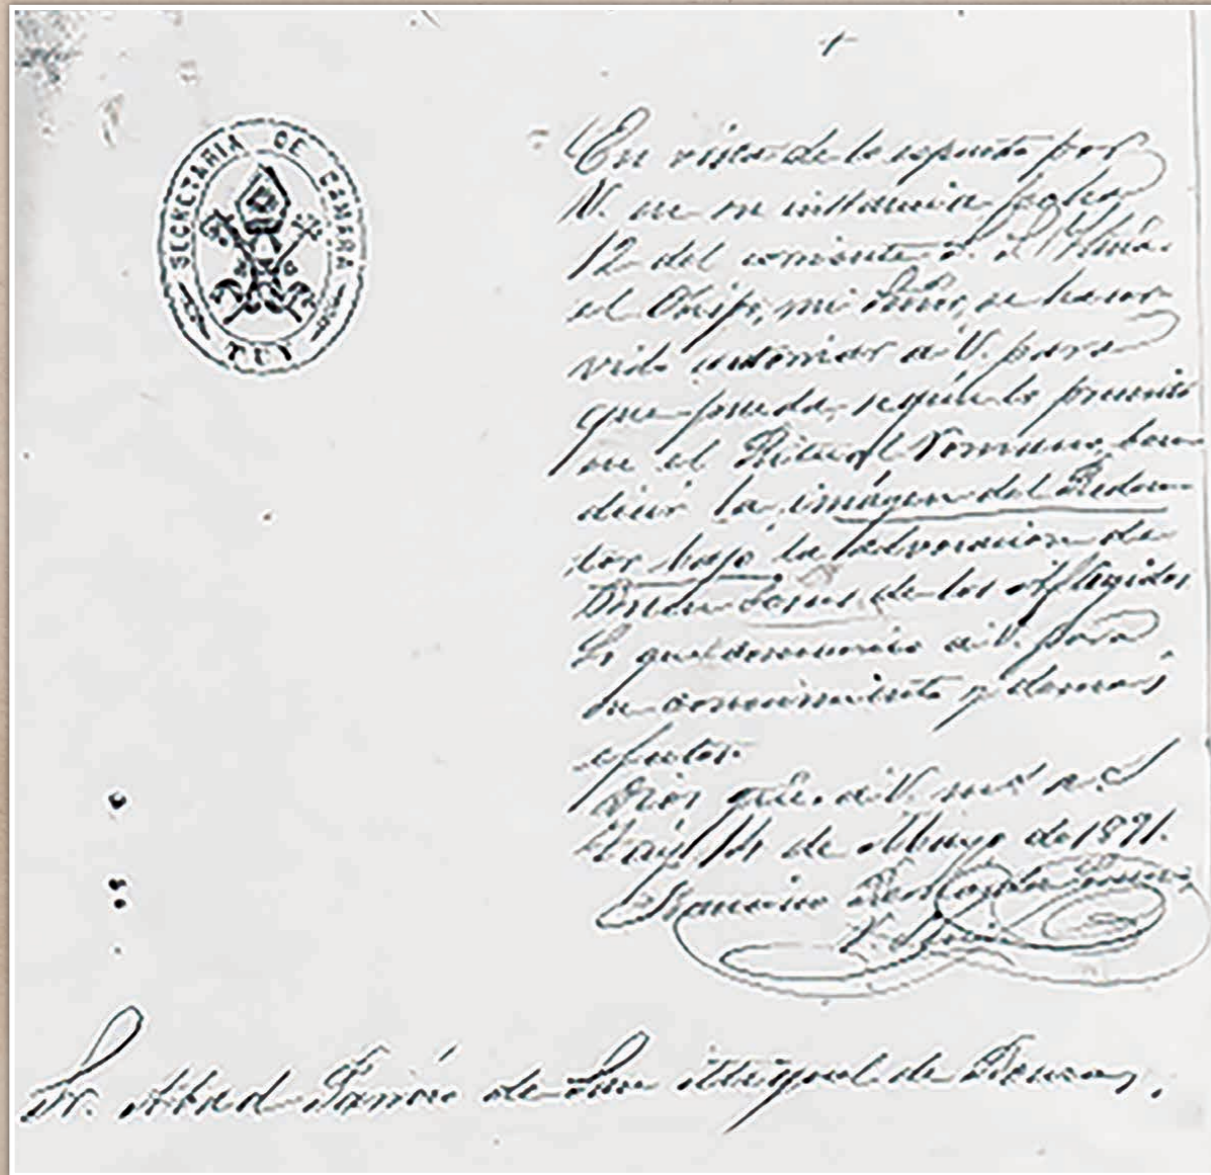 SECRETARIA DE CAMARA
TUY
En vista de lo espuesto por
V. en su instancia fecha
12 del corriente S. S. Ilma.
el Obispo, mi Señor, se ha ser-
vido autorizar á V. para
que pueda, según lo prescrito
en el Ritual Romano, ben-
decir la imágen del Reden-
tor bajo la advocacion de
de los Afligidos
Lo que comunico á V. para
su conocimiento y demas
efectos.
Dios gue. á V. ms. a.s
Tuy 14 de Mayo de 1891.
Sr. Abad Párroco de San Miguel de